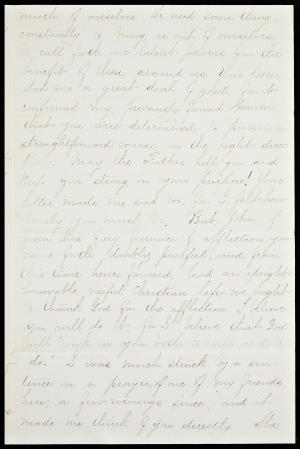 much of ourselves. We need something
constantly to bring us out of ourselves
to call forth our latent powers for the
benefit of those around us. Your letter
did me a great deal of good, for it
confirmed my previously formed opinion
that you were determined to pursue a
straightforward course in the right direc-
tion. May the Father help you and
keep you strong in your purpose! Your
letter made me sad too, for I felt how
lonely you must be. But John, if
from this fiery furnace of affliction you
come forth doubly purified, and from
this time hence forward, lead an upright
honorable, useful Christian life we ought
to thank God for the affliction. I believe
you will do it for I believe that God
will "work in you both to will and to
do." I was much struck by a sen-
tence in a prayer of one of my friends
here, a few evenings since, and it
made me think of you directly. She